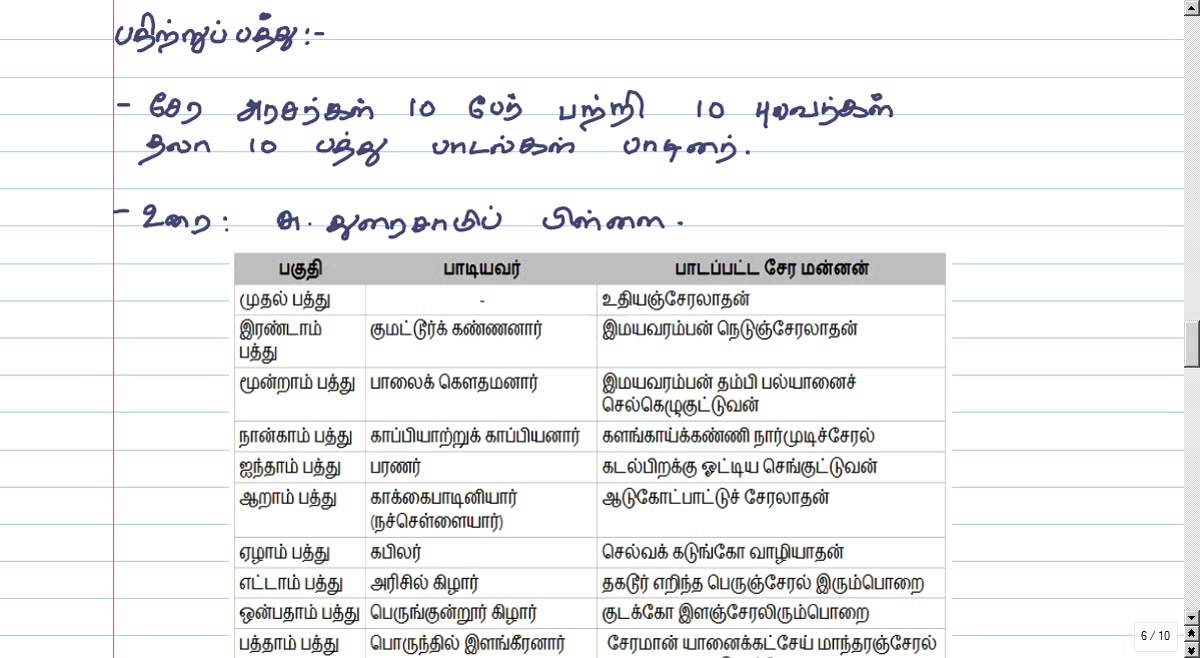 பதிற்றுப் பத்து :-
- சேர அரசர்கள் 10 பேர் பற்றி 10 புலவர்கள்
தலா 10 பத்து பாடல்கள் பாடினர்.
- உரை : சு. துரைசாமிப் பிள்ளை.
பகுதி பாடியவர் பாடப்பட்ட சேர மன்னன்
முதல் பத்து - உதியஞ்சேரலாதன்
இரண்டாம் பத்து குமட்டூர்க் கண்ணனார் இமயவரம்பன் நெடுஞ்சேரலாதன்
மூன்றாம் பத்து பாலைக் கௌதமனார் இமயவரம்பன் தம்பி பல்யானைச்
செல்கெழுகுட்டுவன்
நான்காம் பத்து காப்பியாற்றுக் காப்பியனார் களங்காய்க்கண்ணி நார்முடிச்சேரல்
ஐந்தாம் பத்து பரணர் கடல்பிறக்கு ஓட்டிய செங்குட்டுவன்
ஆறாம் பத்து காக்கைபாடினியார் ஆடுகோட்பாட்டுச் சேரலாதன்
(நச்செள்ளையார்)
ஏழாம் பத்து கபிலர் செல்வக் கடுங்கோ வாழியாதன்
எட்டாம் பத்து அரிசில் கிழார் தகடூர் எறிந்த பெருஞ்சேரல் இரும்பொறை
ஒன்பதாம் பத்து பெருங்குன்றூர் கிழார் குடக்கோ இளஞ்சேரலிரும்பொறை
பத்தாம் பத்து பொருந்தில் இளங்கீரனார் சேரமான் யானைக்கட்சேய் மாந்தரஞ்சேரல்
6 / 10